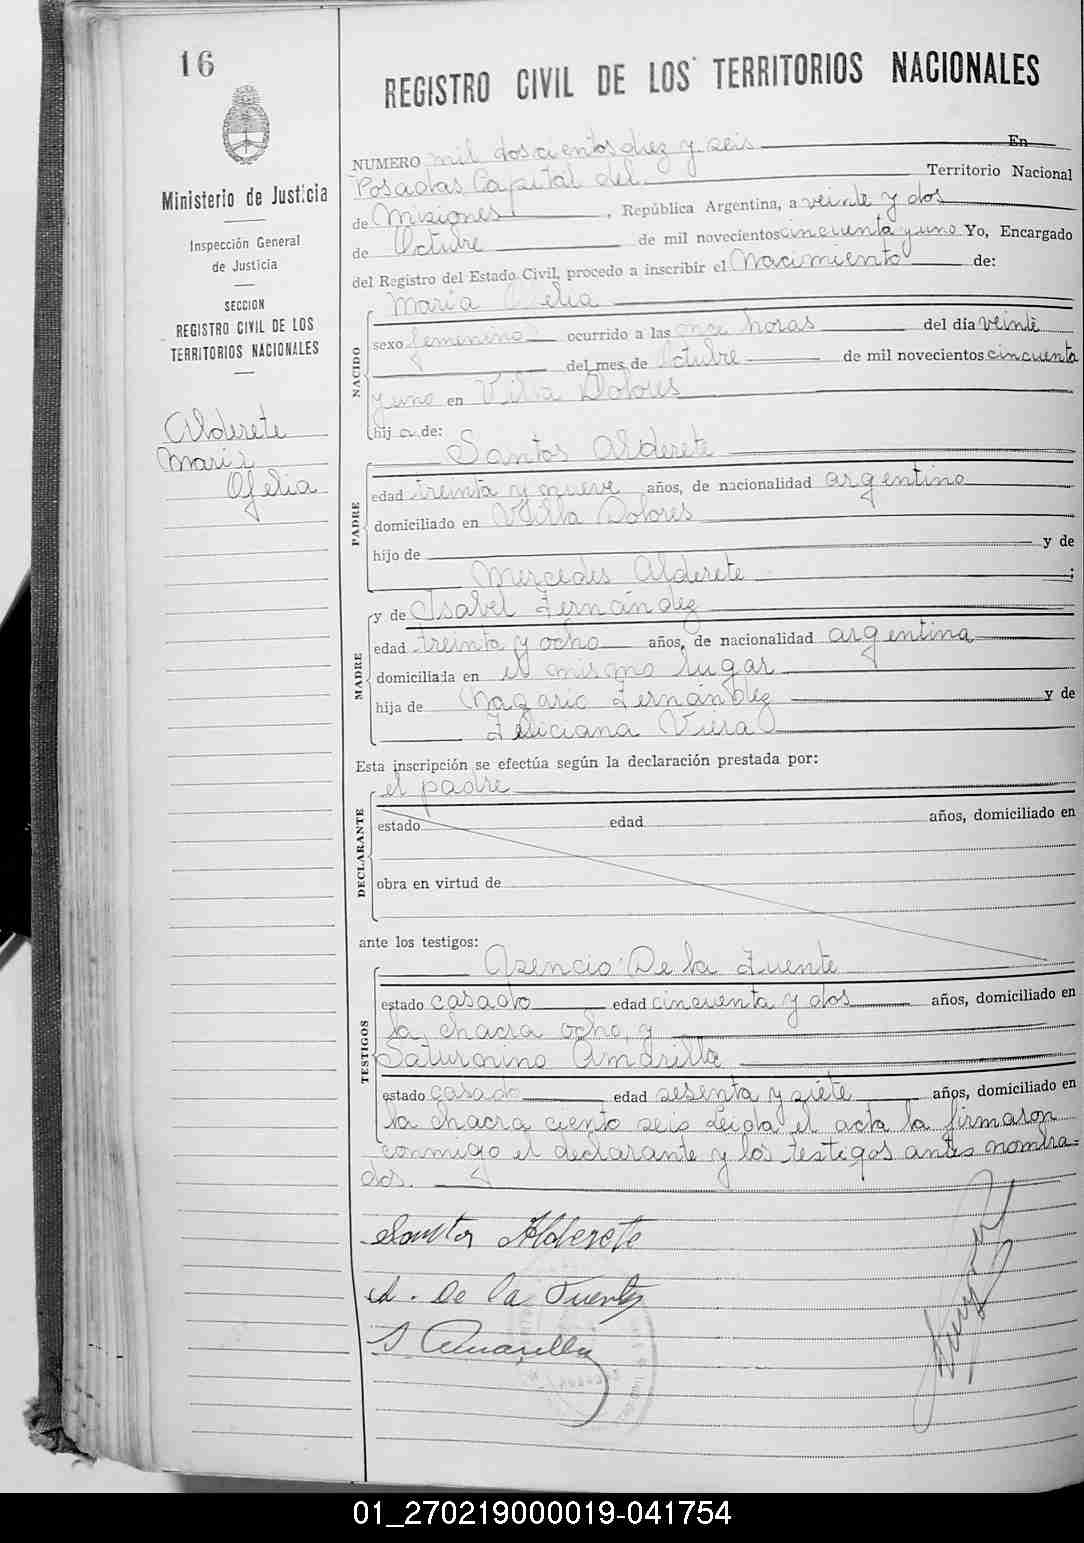 16
Ministerio de Justicia
Inspección General
de Justicia
SECCION
REGISTRO CIVIL DE LOS
TERRITORIOS NACIONALES
Alderete
Maria
Ofelia
REGISTRO CIVIL DE LOS TERRITORIOS NACIONALES
NUMERO mil doscientos diez y seis En
Posadas Capital del Territorio Nacional
de Misiones, República Argentina, a veinte y dos
de Octubre de mil novecientos cincuenta y uno Yo, Encargado
del Registro del Estado Civil, procedo a inscribir el Nacimiento de:
NACIDO
Maria Ofelia
sexo femenino ocurrido a las once horas del día veinte
del mes de Octubre de mil novecientos cincuenta
y uno en Villa Dolores
hij a de:
PADRE
Santos Alderete
edad treinta y nueve años, de nacionalidad argentino
domiciliado en Villa Dolores
hijo de y de
Mercedes Alderete ;
MADRE
y de Isabel Fernández
edad treinta y ocho años, de nacionalidad argentina
domiciliada en el mismo lugar
hija de Nazario Fernández y de
Feliciana Viera
Esta inscripción se efectúa según la declaración prestada por:
DECLARANTE
el padre
estado edad años, domiciliado en
obra en virtud de
ante los testigos:
TESTIGOS
Asencio De la Fuente
estado casado edad cincuenta y dos años, domiciliado en
la chacra ocho, y
Saturnino Amarilla
estado casado edad sesenta y siete años, domiciliado en
la chacra ciento seis Leida el acta la firmaron
conmigo el declarante y los testigos antes nombra-
dos.
Santos Alderete
A. De la Fuente
S Amarilla
01_270219000019-041754